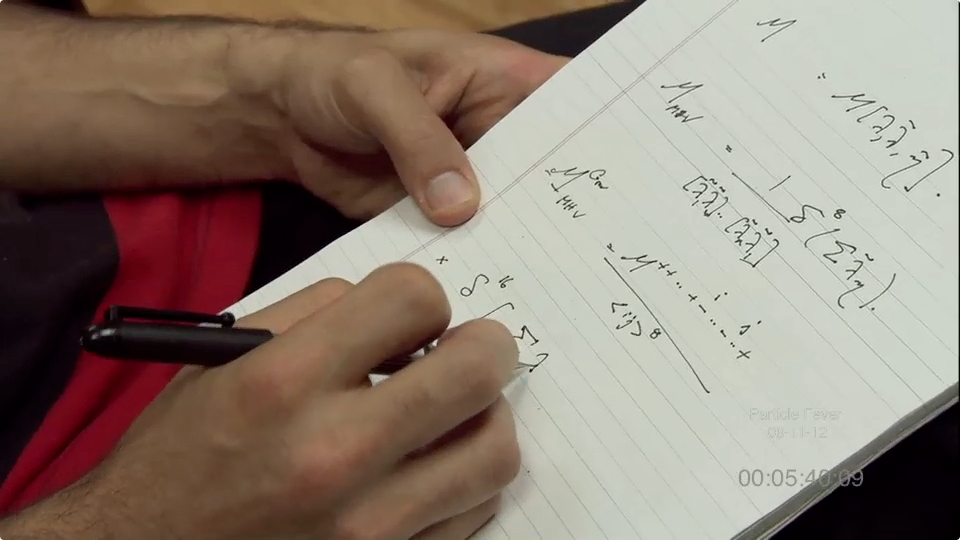 M
= M[λ̃, λ̃, η̃].
M_MHV
= 1 / [λ̃₁λ̃₂]..[λ̃ₙλ̃₁] δ⁸(Σ λ̃η).
M^Gr_MHV
= M^{++..+-..-..+} / <ij>⁸
i j
× δ¹⁶( Σ λ
Particle Fever
08-11-12
00:05:40:09